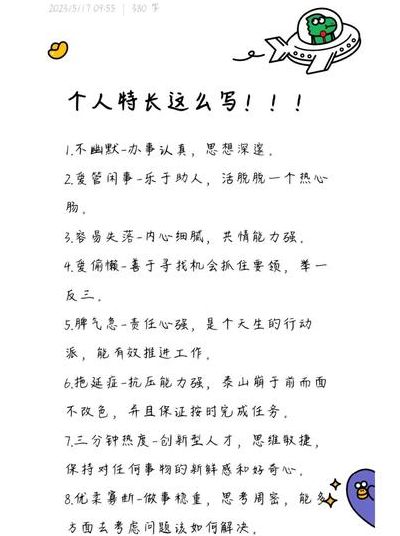 2023/5/17 09:55 | 380 字
个人特长这么写！！！
1.不幽默-办事认真，思想深邃。
2.爱管闲事-乐于助人，活脱脱一个热心
肠。
3.容易失落-内心细腻，共情能力强。
4.爱偷懒-善于寻找机会抓住要领，举一
反三。
5.脾气急-责任心强，是个天生的行动
派，能有效推进工作。
6.拖延症-抗压能力强，泰山崩于前而面
不改色，并且保证按时完成任务。
7.三分钟热度-创新型人才，思维敏捷，
保持对任何事物的新鲜感和好奇心。
8.优柔寡断-做事稳重，思考周密，能多
方面去考虑问题该如何解决。